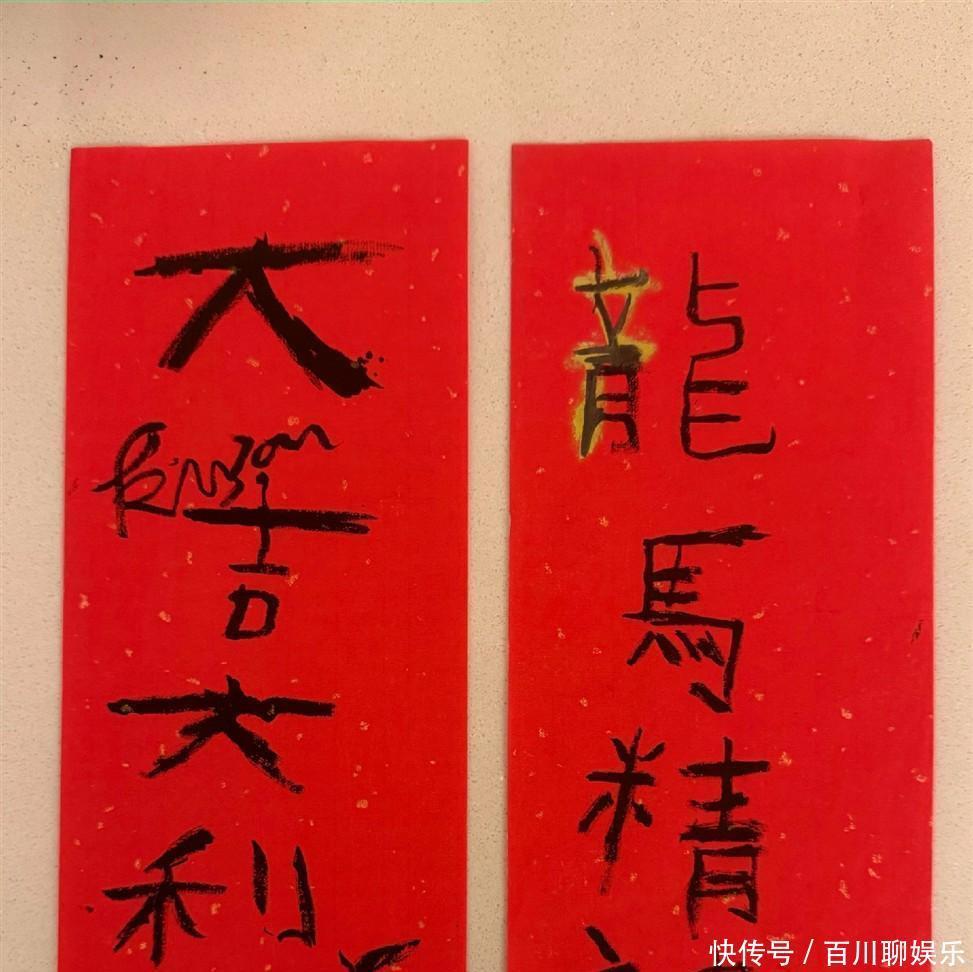 龍馬精
大吉大利
快传号 / 百川聊娱乐